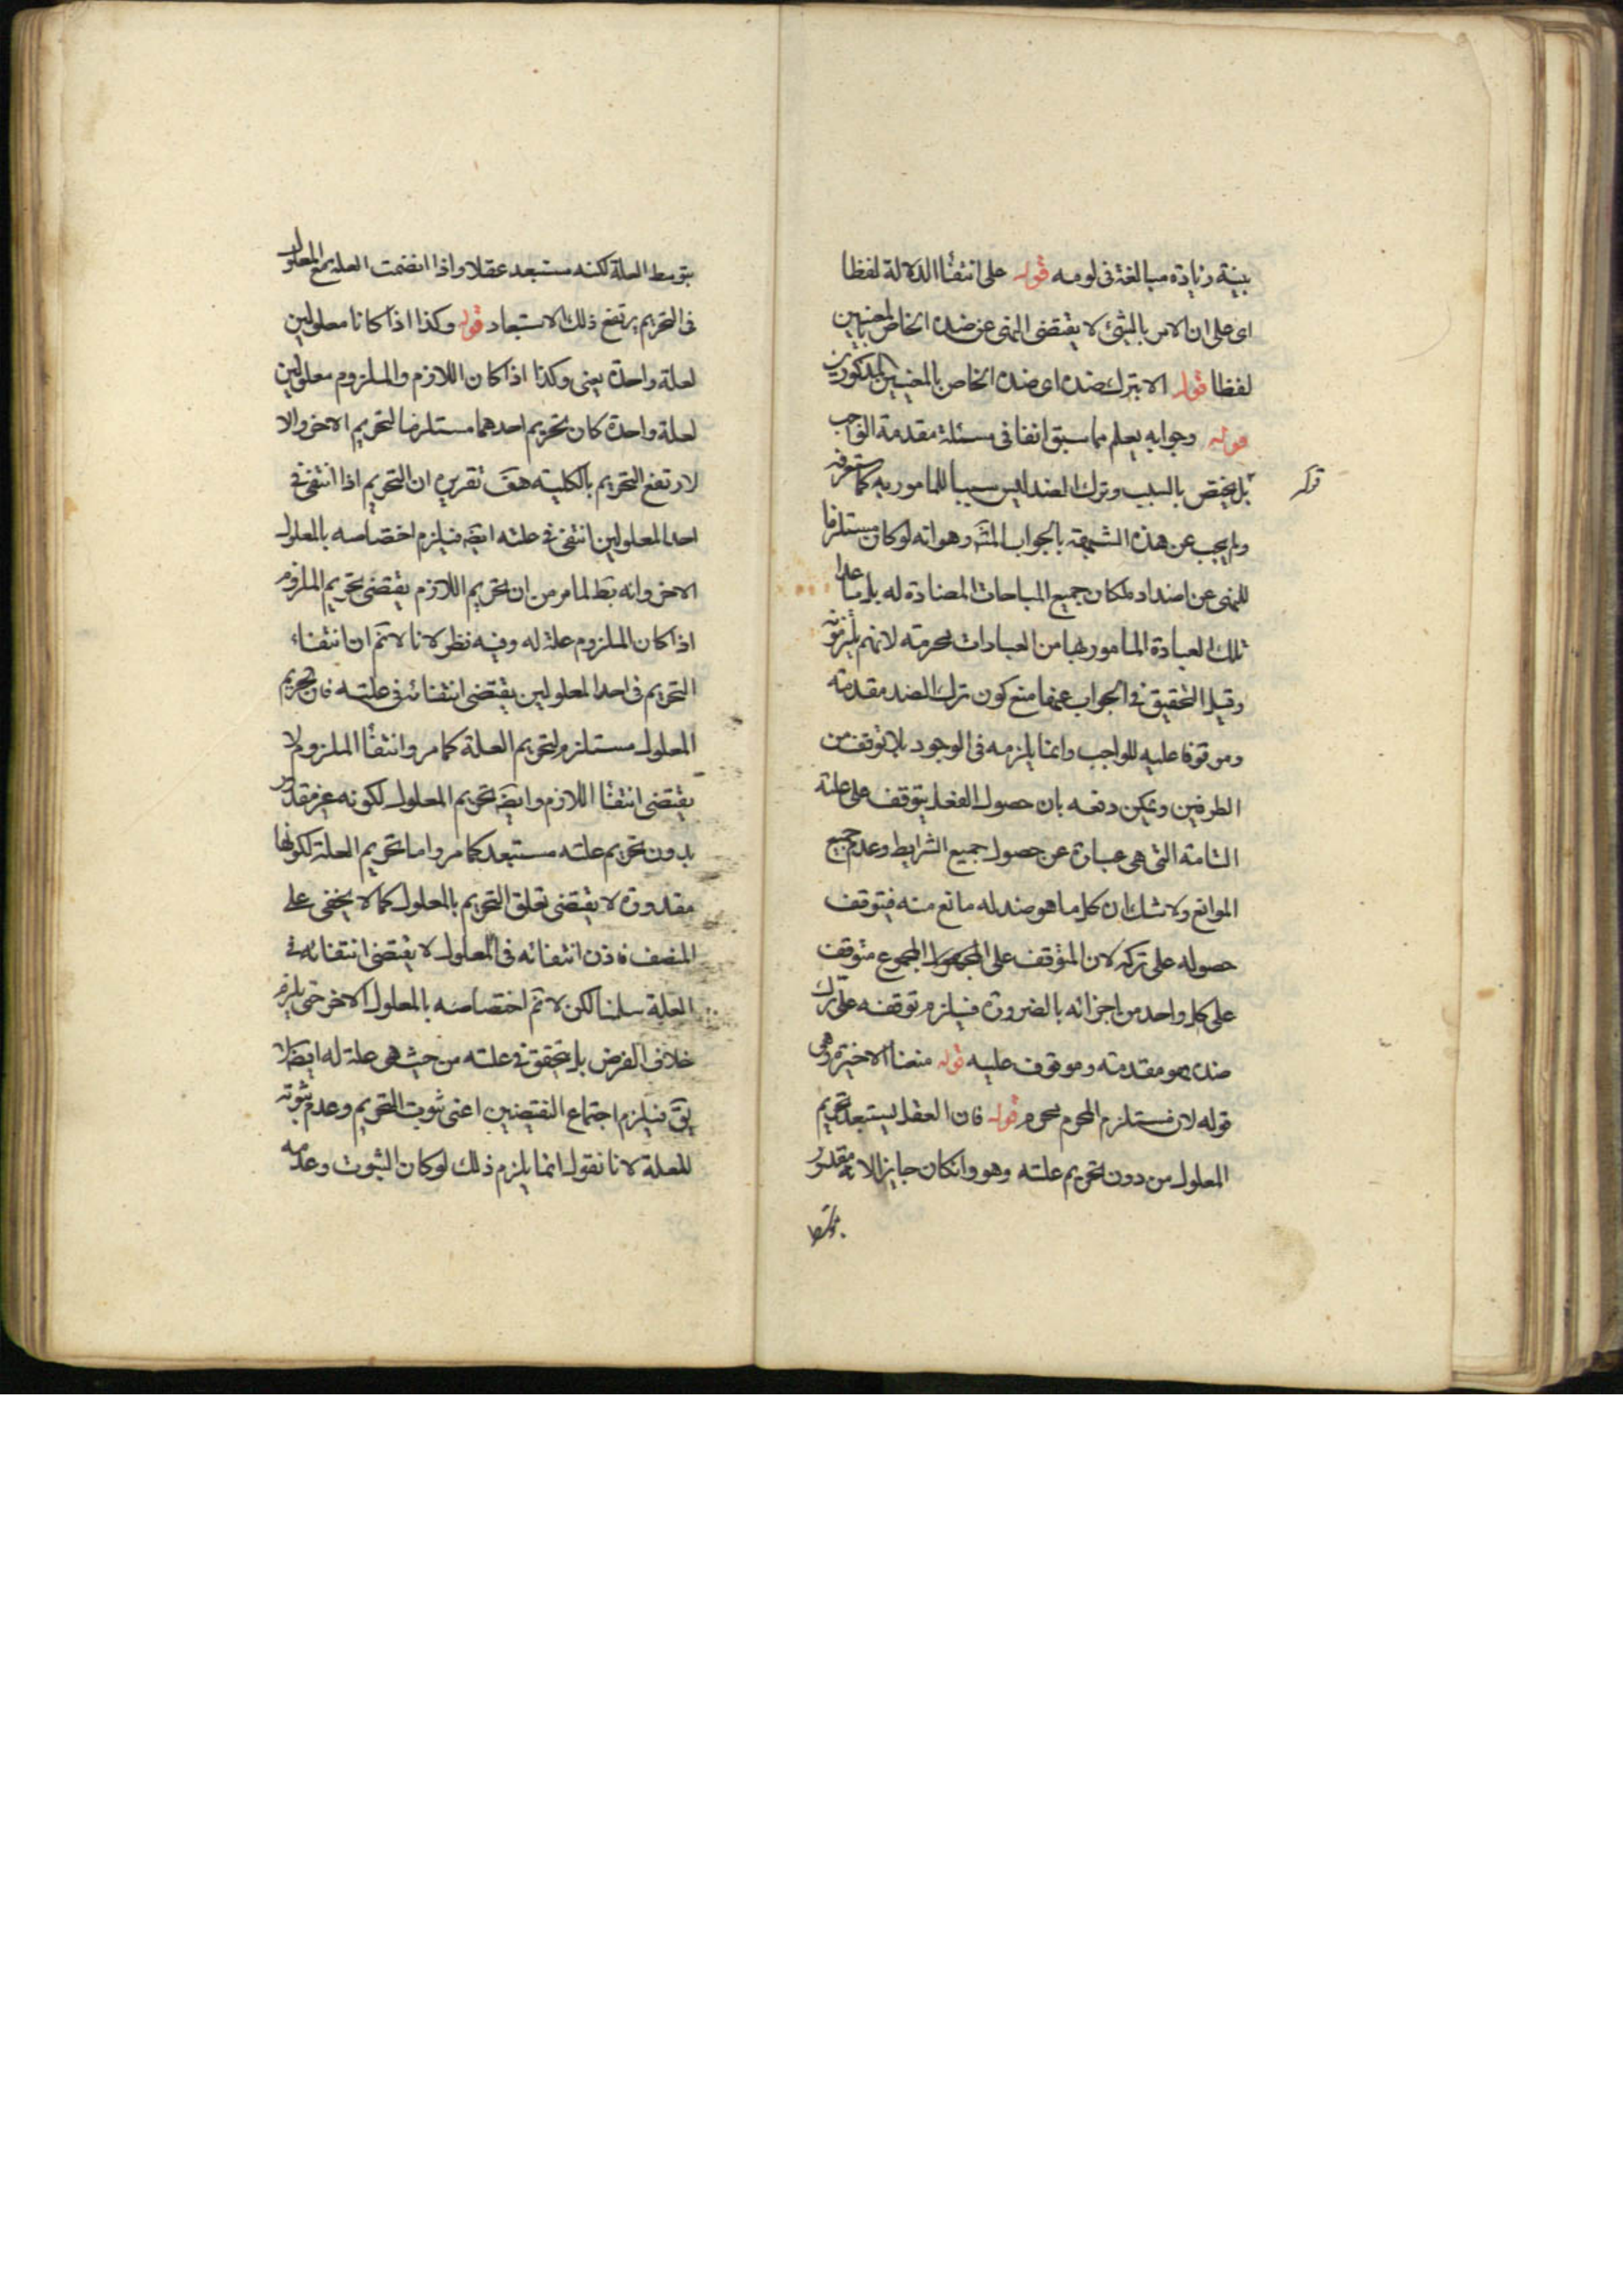 بينة زيادة مبالغة فى لومه قوله على انتفاء الدلالة لفظا
اى على ان الامر بالشئ لا يقتضى النهى عن ضده الخاص بالمعنيين
لفظا قوله الا بترك ضده اى ضده الخاص بالمعنيين المذكورين
قوله وجوابه يعلم مما سبق انفا فى مسئلة مقدمة الواجب
بل يختص بالسبب وترك الضد ليس سببا للمامور به كما ستعرفه
قوله
ولم يجب عن هذه الشبهة بالجواب المشهَ وهو انه لو كان مستلزما
للنهى عن اضداده لكان جميع المباحات المضادة له بل ما عدا
تلك العبادة المامور بها من العبادات محرمة لانهم يلتزمونه
وقيل التحقيق فى الجواب عنها منع كون ترك الضد مقدمة
وموقوفا عليه للواجب وانما يلزمه فى الوجود بلا توقف من
الطرفين ويمكن دفعه بان حصول الفعل يتوقف على علته
التامة التى هى عبارة عن حصول جميع الشرايط وعدم جميع
الموانع ولا شك ان كل ما هو ضد له مانع منه فيتوقف
حصوله على تركه لان المتوقف على المجموع متوقف
على كل واحد من اجزائه بالضرورة فيلزم توقفه على ترك
ضده فهو مقدمته وموقوف عليه قوله منعنا الاخيرة وهى
قوله لان مستلزم المحرم محرم قوله فان العقل يستبعد تحريم
المعلول من دون تحريم علته وهو وان كان جايزا لانه مقدور
بتوسط
بتوسط العلة لكنه مستبعد عقلا واذا انضمت العلة مع المعلول
فى التحريم يرتفع ذلك الاستبعاد قوله وكذا اذا كانا معلولين
لعلة واحدة يعنى وكذا اذا كان اللازم والملزوم معلولين
لعلة واحدة كان تحريم احدهما مستلزما لتحريم الاخر والا
لارتفع التحريم بالكلية هف تقريره ان التحريم اذا انتفى فى
احد المعلولين انتفى فى علته ايضَ فيلزم اختصاصه بالمعلول
الاخر وانه بَط لما مر من ان تحريم اللازم يقتضى تحريم الملزوم
اذا كان الملزوم علة له وفيه نظر لانا لانَم ان انتفاء
التحريم فى احد المعلولين يقتضى انتفائه فى علته فان تحريم
المعلول مستلزم لتحريم العلة كما مر وانتفاء الملزوم لا
يقتضى انتفاء اللازم وايضَ تحريم المعلول لكونه غير مقدور
بدون تحريم علته مستبعد كما مر واما تحريم العلة لكونها
مقدورة لا يقتضى تعلق التحريم بالمعلول كما لا يخفى على
المنصف فاذن انتفائه فى المعلول لا يقتضى انتفائه فى
العلة سلمنا لكن لانَم اختصاصه بالمعلول الاخر حتى يلزم
خلاف الفرض بل يتحقق فى علته من حيث هى علة له ايضَ لا
يقَ فيلزم اجتماع النقيضين اعنى ثبوت التحريم وعدم ثبوته
للعلة لانا نقول انما يلزم ذلك لو كان الثبوت وعدمه